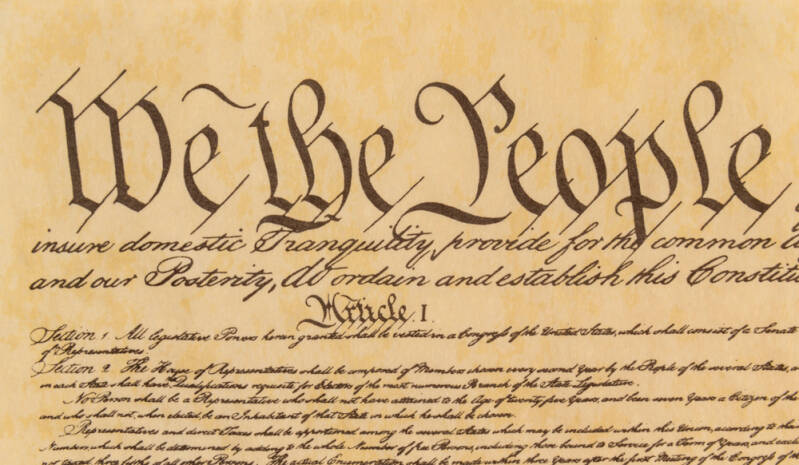 We the People
insure domestic Tranquility, provide for the common
and our Posterity, do ordain and establish this Constitu
Article I.
Section 1 All legislative Powers herein granted shall be vested in a Congress of the United States, which shall consist of a Senate
of Representatives
Section 2 The House of Representatives shall be composed of Members chosen every second Year by the People of the several States, a
in each State shall have Qualifications requisite for Electors of the most numerous Branch of the State Legislature.
No Person shall be a Representative who shall not have attained to the Age of twenty five Years, and been seven Years a Citizen of the
and who shall not, when elected, be an Inhabitant of that State in which he shall be chosen.
Representatives and direct Taxes shall be apportioned among the several States which may be included within this Union, according to the
Numbers, which shall be determined by adding to the whole Number of free Persons, including those bound to Service for a Term of Years, and exc
not taxed three fifths of all other Persons. The actual Enumeration shall be made within three Years after the first Meeting of the Congress of th